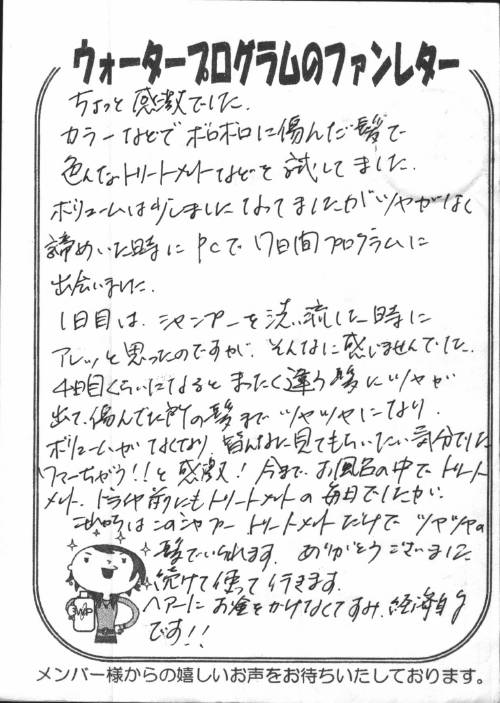 ウォータープログラムのファンレター
ちょっと感激でした.
カラーなどでボロボロに傷んだ髪で
色んなトリートメントなどを試してました.
ボリュームは少しましになってましたがツヤがなく
諦めいた時にPCで17日間プログラムに
出会いました.
1日目は、シャンプーを洗い流した時に
アレッと思ったのですが、そんなに感じませんでした.
4日目くらいになるとまったく違う髪にツヤが
出て、傷んでた所の髪までツヤツヤになり.
ボリュームがなくなり、皆んなに見てもらいたい気分でした
ワァーちがう!!と感激! 今まで、お風呂の中でトリート
メント、ドライヤ前にもトリートメントの毎日でしたが、
これからはこのシャンプートリートメントだけでツヤツヤの
髪でいられます. ありがとうございました
続けて使って行きます.
ヘアーにお金をかけなくてすみ、経済的
です!!
WP
メンバー様からの嬉しいお声をお待ちいたしております。